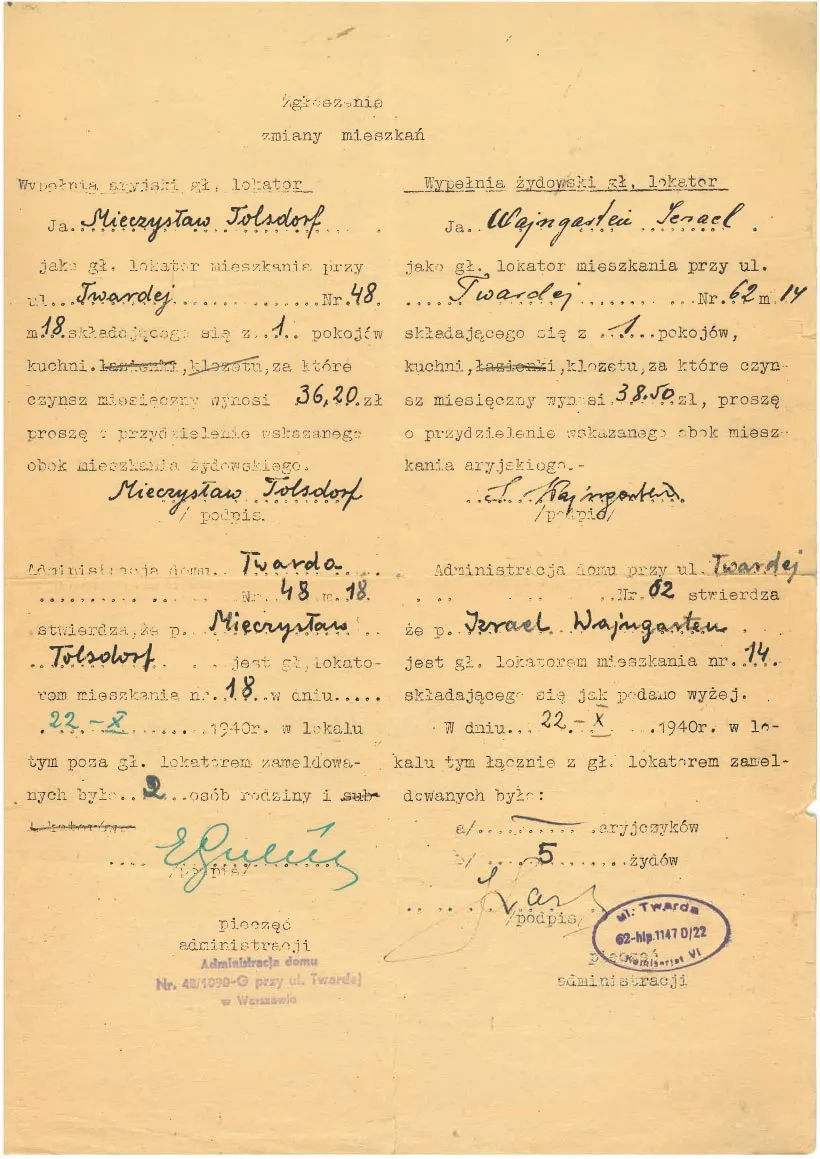 Zgłoszenie
zmiany mieszkań
Wypełnia aryjski gł. lokator
Ja. Mieczysław Tolsdorf
jako gł. lokator mieszkania przy
ul...Twardej..............Nr.48.
m.18.składającego się z..1.. pokojów
kuchni.łazienki,klozetu,za które
czynsz miesięczny wynosi .36,20.zł
proszę o przydzielenie wskazanego
obok mieszkania żydowskiego.
Mieczysław Tolsdorf
/ podpis.
Administracja domu.. Twarda
Nr. 48 m.18.
stwierdza,że p. Mieczysław
Tolsdorf jest gł,lokato-
rom mieszkania nr.18..w dniu.....
22-X 1940r. w lokalu
tym poza gł. lokatorem zameldowa-
nych było..2...osób rodziny i sub-
lokatorów
/podpis/
pieczęć
administracji
Administracja domu
Nr. 48/1090-G przy ul. Twardej
w Warszawie
Wypełnia żydowski gł. lokator
Ja.. Wajngarten Izrael
jako gł. lokator mieszkania przy ul.
Twardej Nr.62 m.14
składającego się z .1...pokojów,
kuchni,łazienki,klozetu,za które czyn-
sz miesięczny wynosi.38.50.zł, proszę
o przydzielenie wskazanego obok miesz-
kania aryjskiego.-
I. Wajngarten
/podpis/
Administracja domu przy ul. Twardej
Nr. 62 stwierdza
że p. Izrael Wajngarten
jest gł. lokatorem mieszkania nr.14.
składającego się jak podano wyżej.
W dniu...22.-X 1940r. w lo-
kalu tym łącznie z gł. lokatorem zamel-
dowanych było:
a/...—........aryjczyków
b/ ....5.......żydów
/podpis/
ul. Twarda
62-hip.1147 D/22
Komisarjat VI
pieczęć
administracji